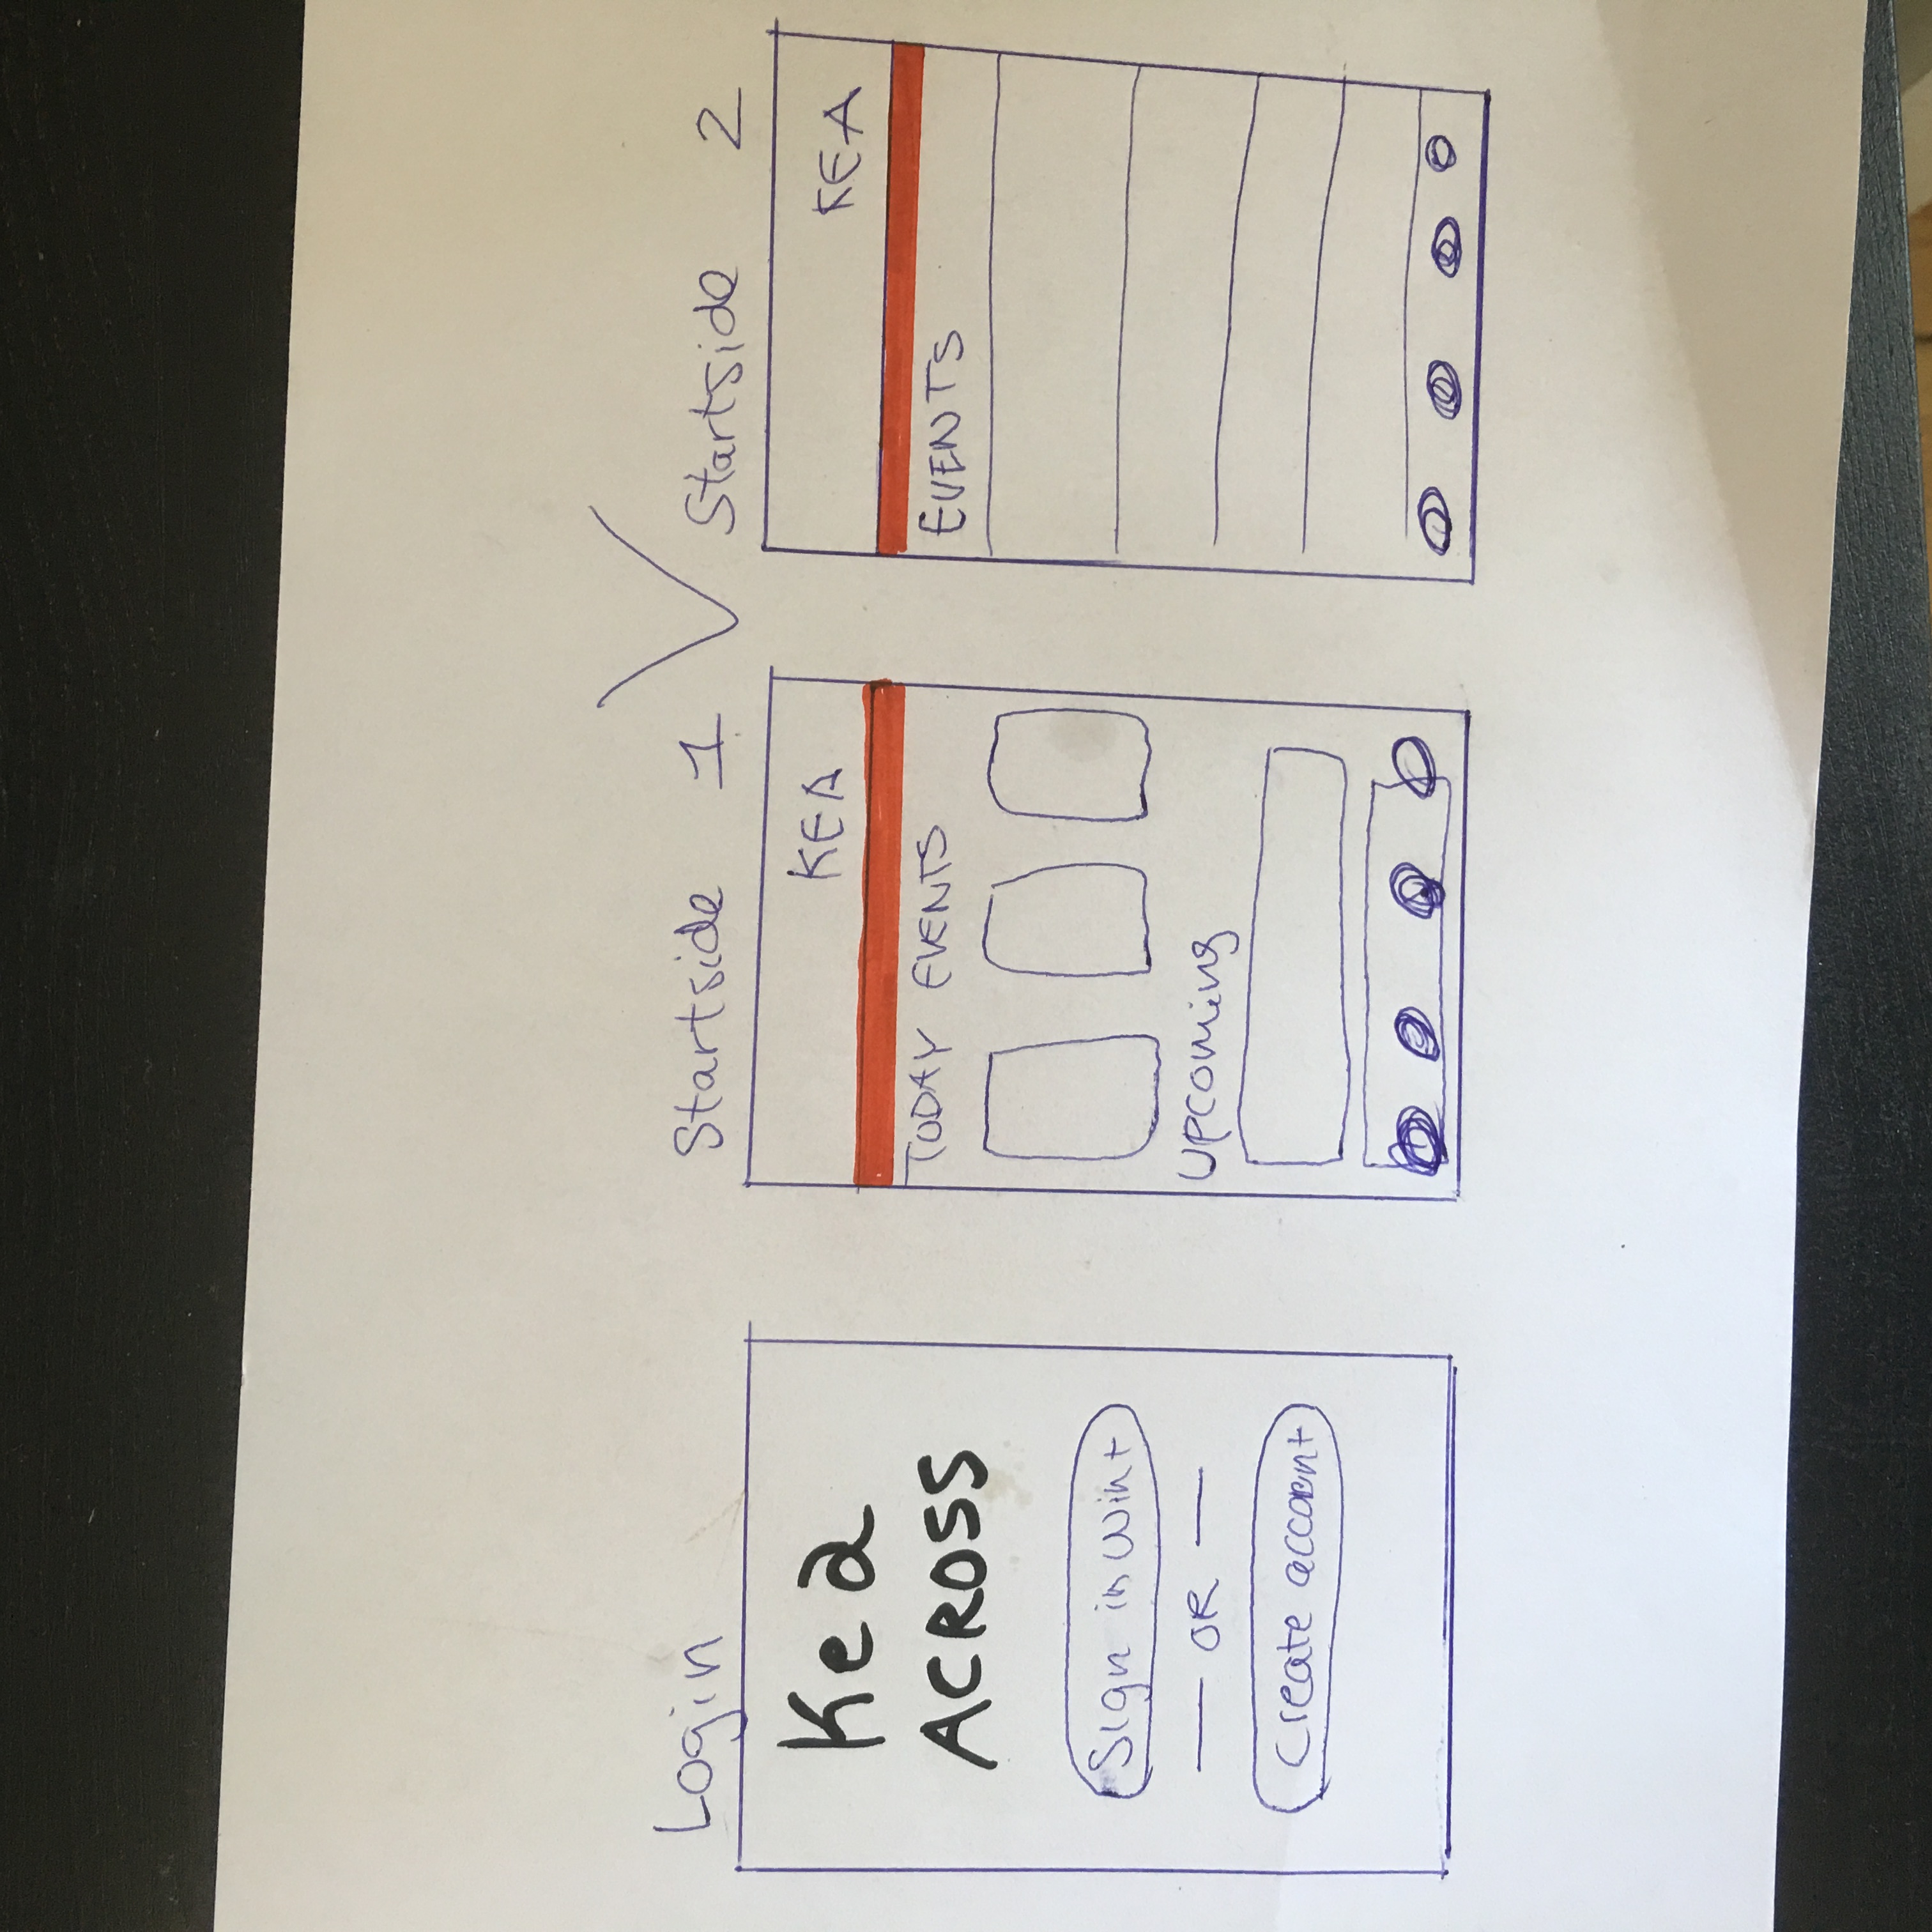 Login
Kea
ACROSS
Sign in Wint
OR
Create account
Startside 1
KEA
TODAY EVENTS
Upcoming
Startside 2
KEA
EVENTS